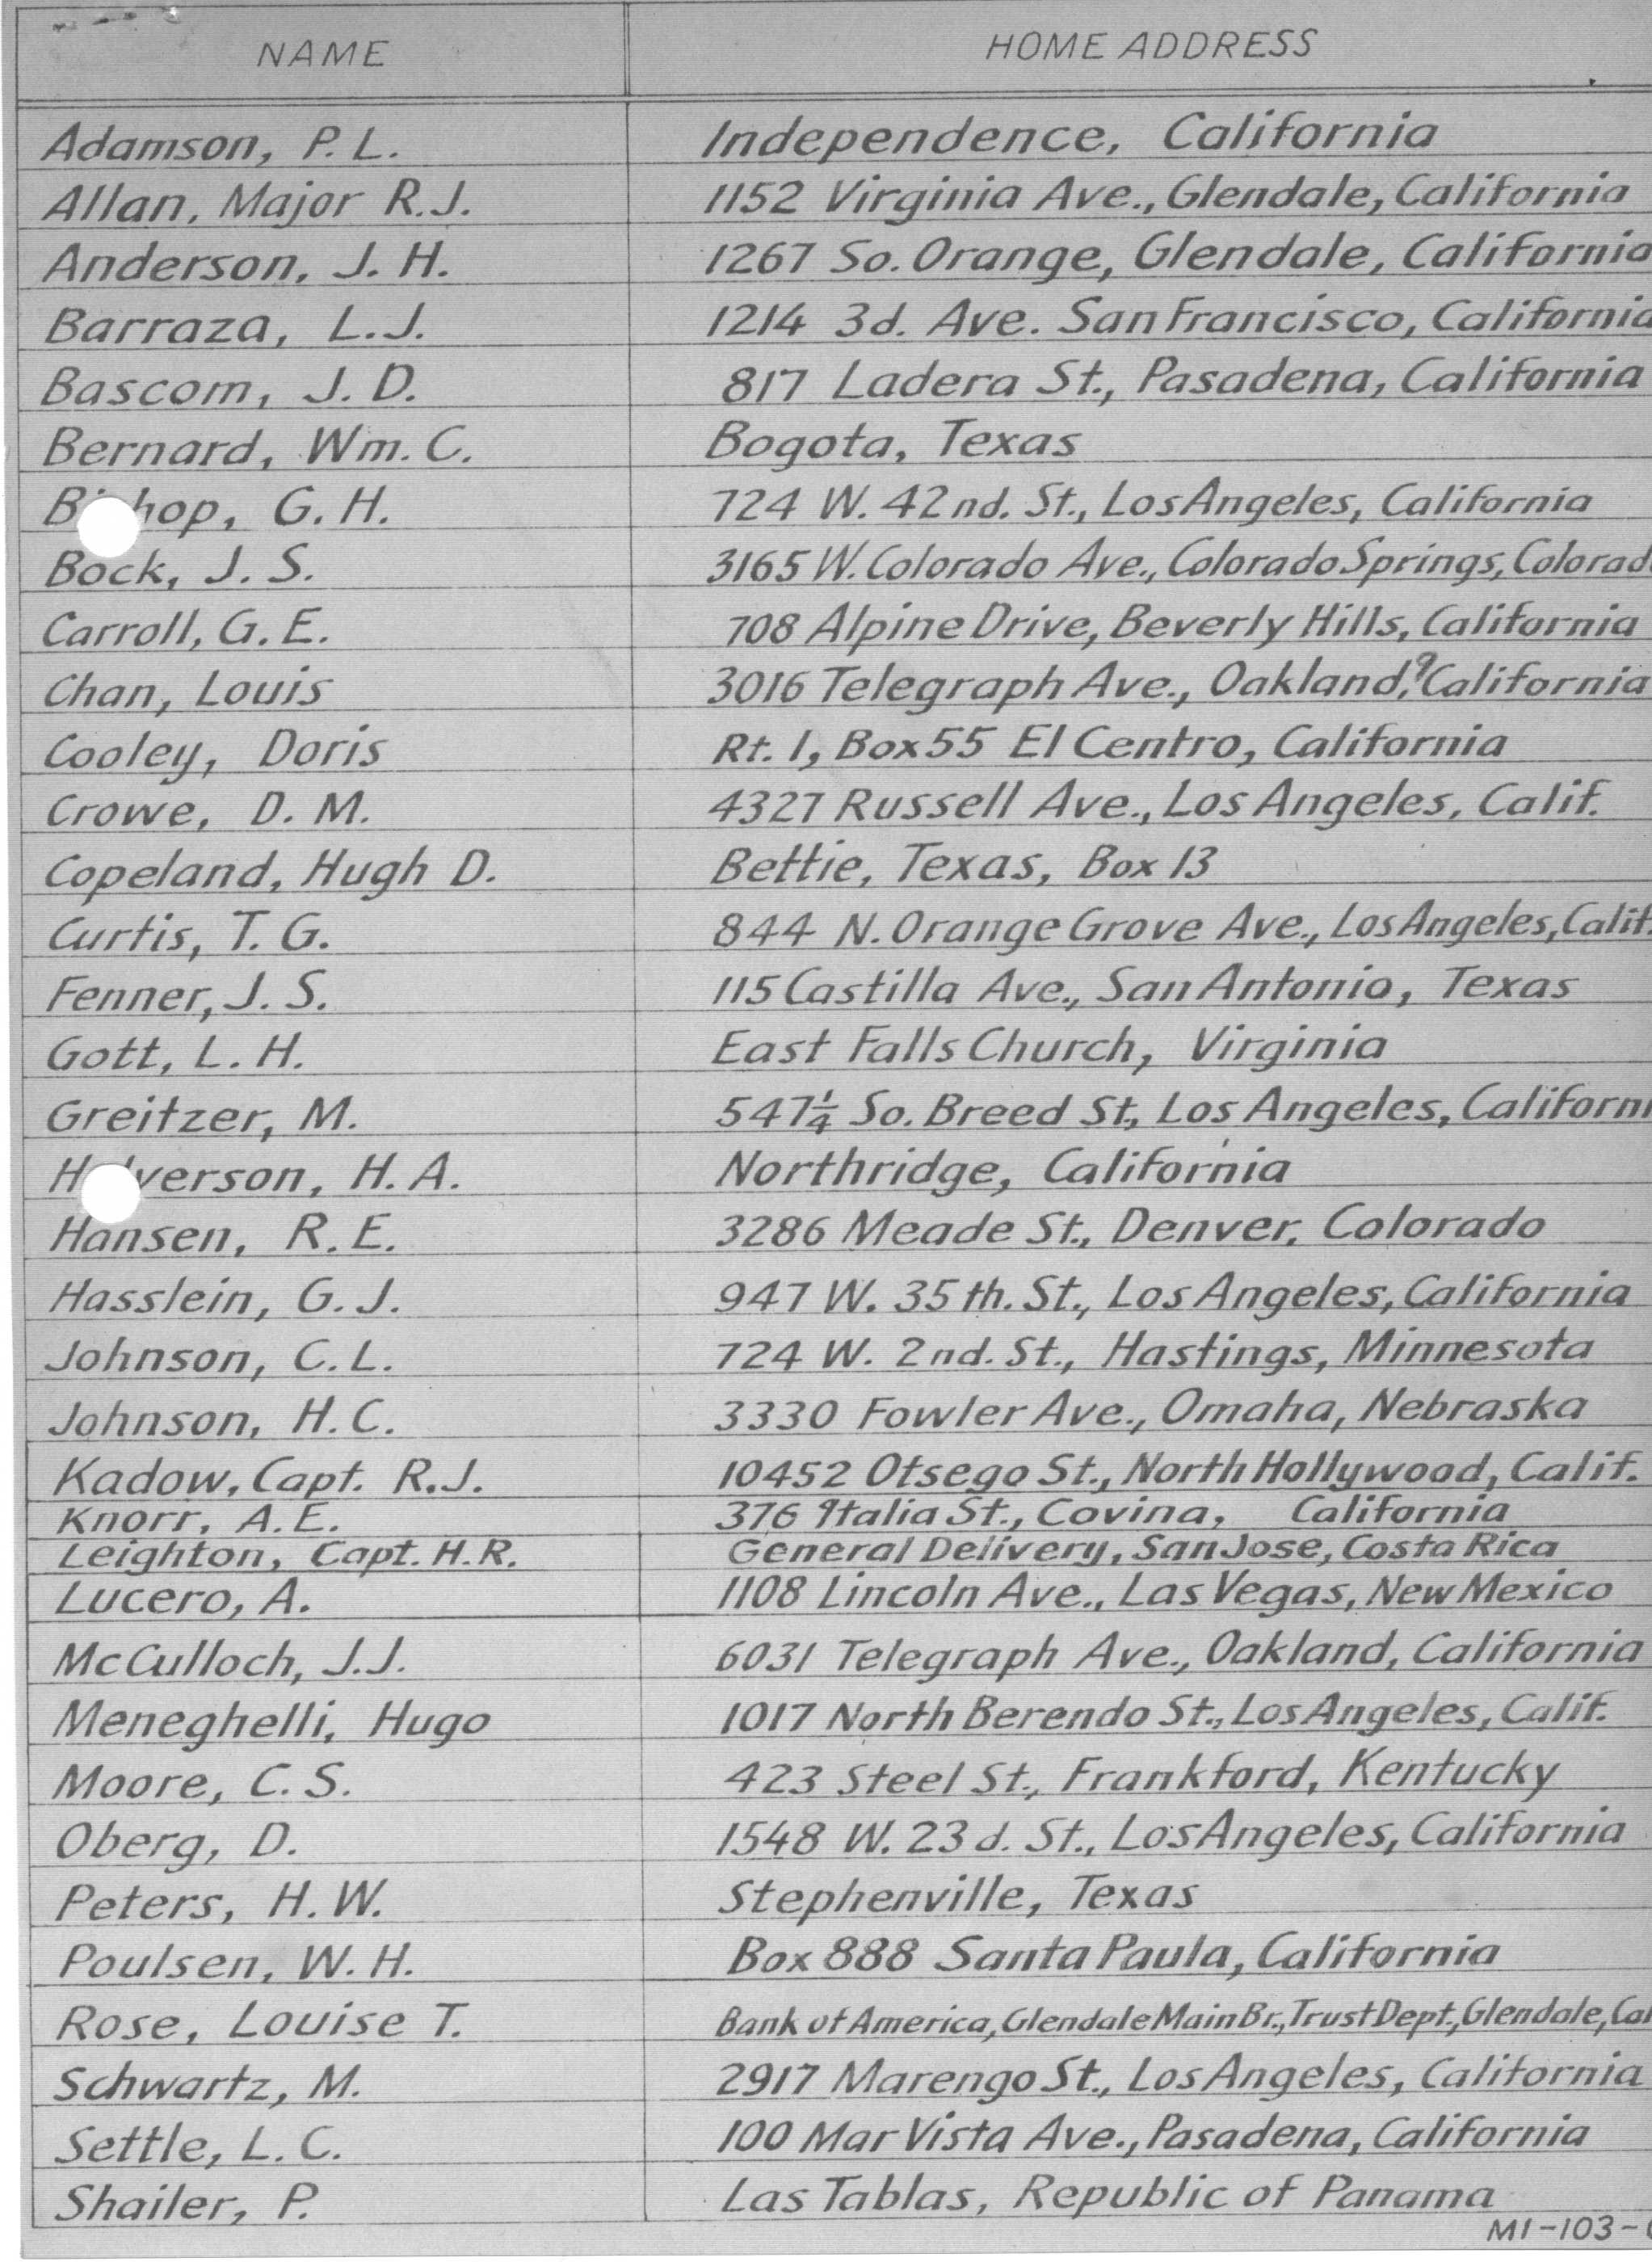 NAME HOME ADDRESS
Adamson, P. L. Independence, California
Allan, Major R.J. 1152 Virginia Ave., Glendale, California
Anderson, J. H. 1267 So. Orange, Glendale, California
Barraza, L.J. 1214 3d. Ave. San Francisco, California
Bascom, J. D. 817 Ladera St., Pasadena, California
Bernard, Wm. C. Bogota, Texas
G. H. 724 W. 42nd. St., Los Angeles, California
Bock, J. S. 3165 W. Colorado Ave., Colorado Springs, Colorad
Carroll, G. E. 708 Alpine Drive, Beverly Hills, California
Chan, Louis 3016 Telegraph Ave., Oakland,9 California
Cooley, Doris Rt. 1, Box 55 El Centro, California
Crowe, D. M. 4327 Russell Ave., Los Angeles, Calif.
Copeland, Hugh D. Bettie, Texas, Box 13
Curtis, T. G. 844 N. Orange Grove Ave., Los Angeles, Calif.
Fenner, J. S. 115 Castilla Ave., San Antonio, Texas
Gott, L. H. East Falls Church, Virginia
Greitzer, M. 547¼ So. Breed St., Los Angeles, Californi
H. A. Northridge, California
Hansen, R. E. 3286 Meade St., Denver, Colorado
Hasslein, G. J. 947 W. 35th. St., Los Angeles, California
Johnson, C. L. 724 W. 2nd. St., Hastings, Minnesota
Johnson, H. C. 3330 Fowler Ave., Omaha, Nebraska
Kadow, Capt. R.J. 10452 Otsego St., North Hollywood, Calif.
Knorr, A. E. 376 Italia St., Covina, California
Leighton, Capt. H.R. General Delivery, San Jose, Costa Rica
Lucero, A. 1108 Lincoln Ave., Las Vegas, New Mexico
McCulloch, J.J. 6031 Telegraph Ave., Oakland, California
Meneghelli, Hugo 1017 North Berendo St., Los Angeles, Calif.
Moore, C. S. 423 Steel St., Frankford, Kentucky
Oberg, D. 1548 W. 23d. St., Los Angeles, California
Peters, H. W. Stephenville, Texas
Poulsen, W. H. Box 888 Santa Paula, California
Rose, Louise T. Bank of America, Glendale Main Br., Trust Dept., Glendale, Cal
Schwartz, M. 2917 Marengo St., Los Angeles, California
Settle, L. C. 100 Mar Vista Ave., Pasadena, California
Shailer, P. Las Tablas, Republic of Panama
M1-103-